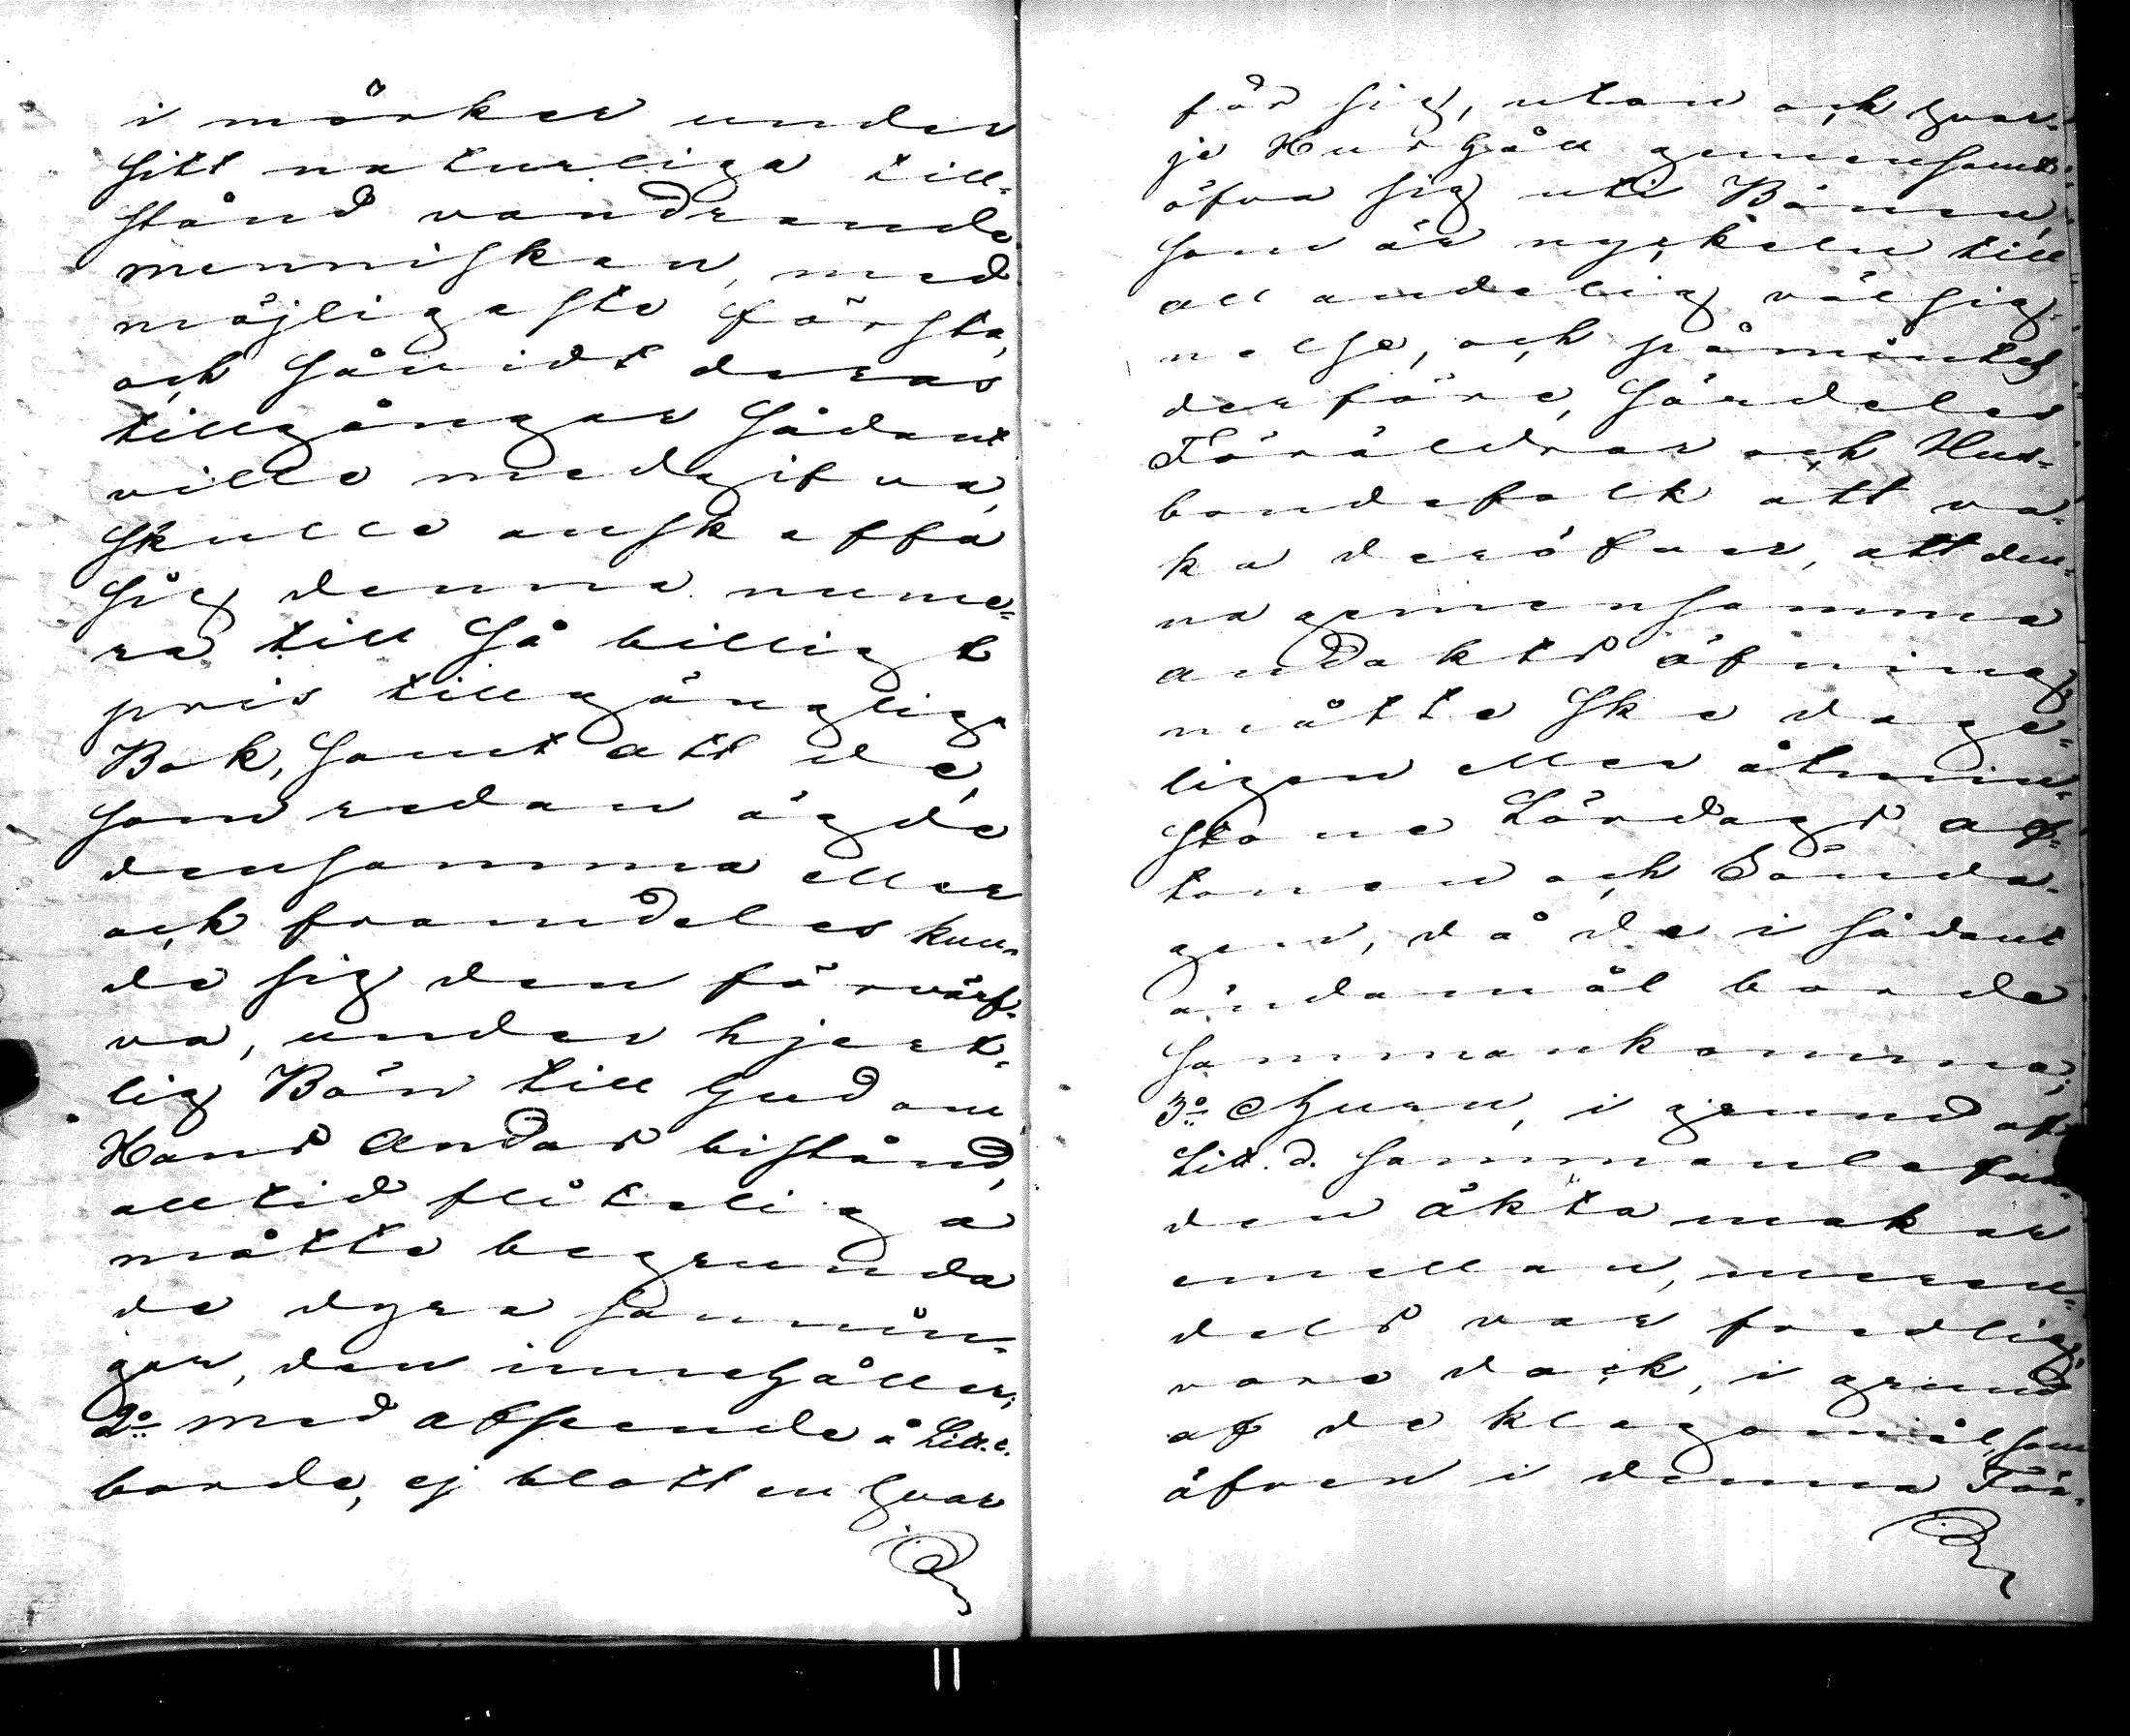 i mörker under
sitt naturliga till-
stånd vandrande
menniskan, med
möjligaste första,
och såvidt deras
tillgångar sådant
ville medgifva,
skulle anskaffa
sig denna nume-
ra till så billigt
pris tillgänglige
Bok, samt att de,
som redan ägde
densamma eller
och framdeles kun-
de sig den förvärf-
va, under hjert-
lig Bön till Gud om
Hans Andas bistånd,
alltid fliteliga
måtte begrunda
de dyra sannin-
gar, den innehåller;
2:o med afseende å Litt. c.
borde, ej blott en hvar
för sig, utan ock hvar-
je Hushåll gemensamt
öfva sig uti Bönen,
som är nyckeln till
all andelig välsig-
nelse, och påmintes
derföre, särdeles
Föräldrar och Hus-
bondefolk att va-
ka deröfver, att den-
na gemensamma
andakts öfning
måtte ske dage-
ligen eller åtmin-
stone Lördags af-
tonen och Sönda-
gen, då de i sådant
ändamål borde
sammankomma;
3:o Ehuru, i grund af
Litt. d. sammanlefna-
den äkta makar
emellan, meren-
dels var fredlig,
vore dock, i grund
af de klagomål, som
äfven i denna För-